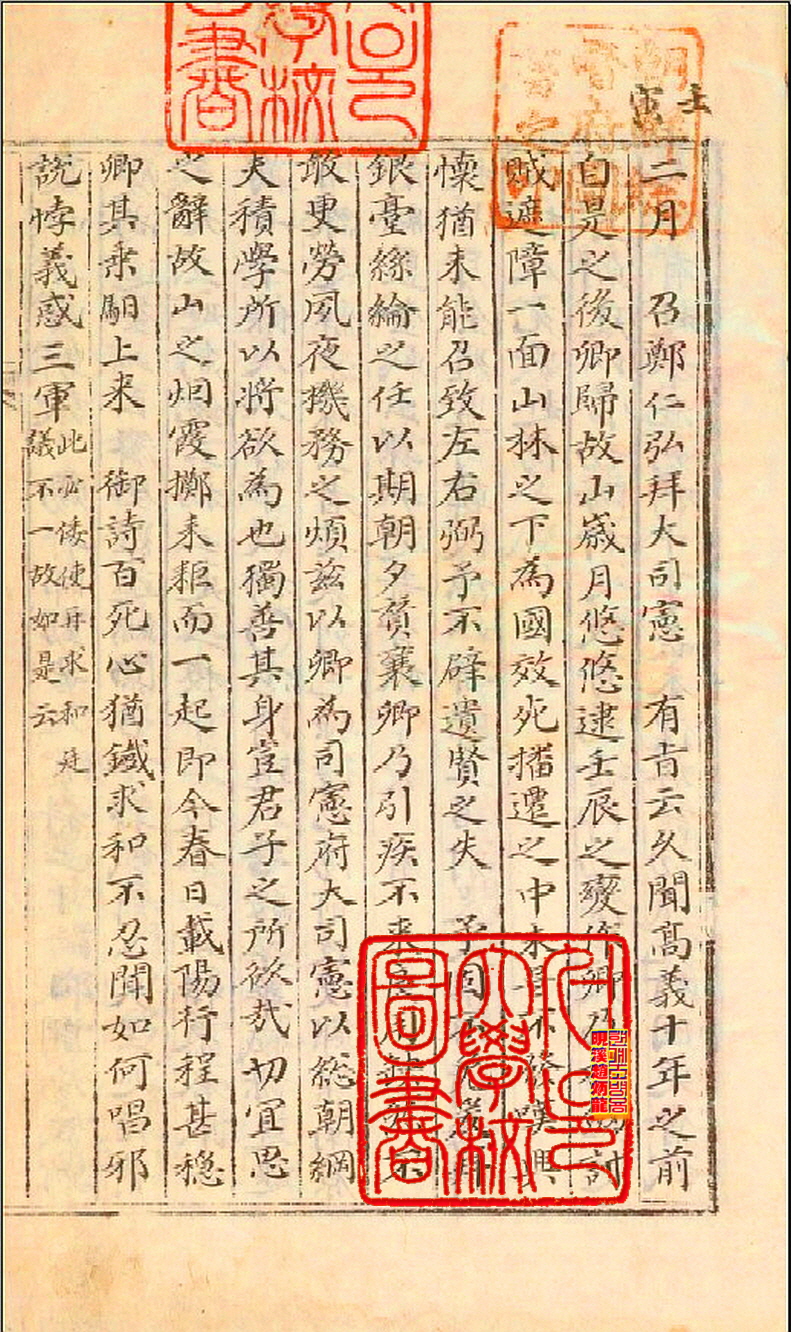 壬寅
二月 召鄭仁弘拜大司憲 有旨云久聞髙義十年之前
自是之後卿歸故山歲月悠悠逮壬辰之變作卿乃討
賊遮障一面山林之下為國效死播遷之中未不發嘆興
懷猶未能召致左右弼予不辟遺賢之失 予固拜
銀臺絲綸之任以期朝夕賛襄卿乃引疾不来良用
敢更勞夙夜機務之煩兹以卿為司憲府大司憲以総朝綱
夫積學所以將欲為也獨善其身豈君子之所欲㦲切宜思
之辭故山之烟霞擲耒耟而一起即今春日載陽行程甚穏
卿其乗馹上来 御詩百死心猶鐡求和不忍聞如何唱邪
說悖義惑三軍
此必倭使再求和廷
議不一故如是云
大學校
圖書
溪趙炳龍